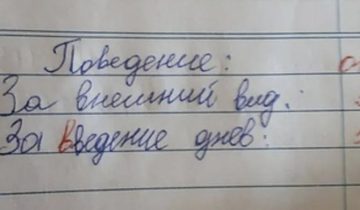 Поведение:
За внешний вид.:
За введение днев: